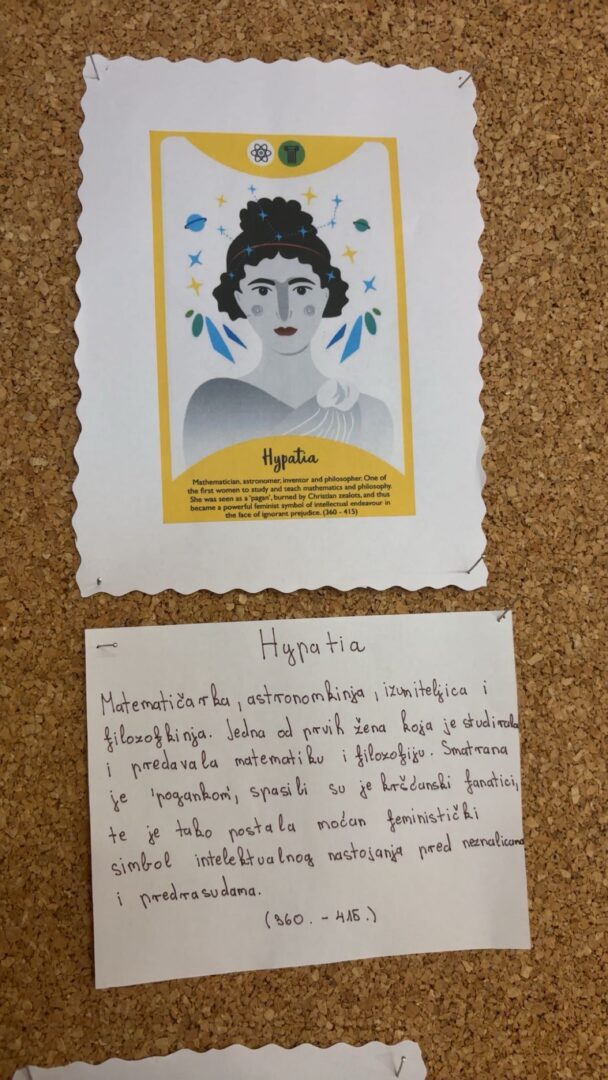 Hypatia
Mathematician, astronomer, inventor and philosopher. One of
the first women to study and teach mathematics and philosophy.
She was seen as a 'pagan', burned by Christian zealots, and thus
became a powerful feminist symbol of intellectual endeavour in
the face of ignorant prejudice. (360 - 415)
Hypatia
Matematičarka, astronomkinja, izumiteljica i
filozofkinja. Jedna od prvih žena koja je studirala
i predavala matematiku i filozofiju. Smatrana
je 'pogankom', spasili su je kršćanski fanatici,
te je tako postala moćan feministički
simbol intelektualnog nastojanja pred neznalicama
i predrasudama.
(360. - 415.)